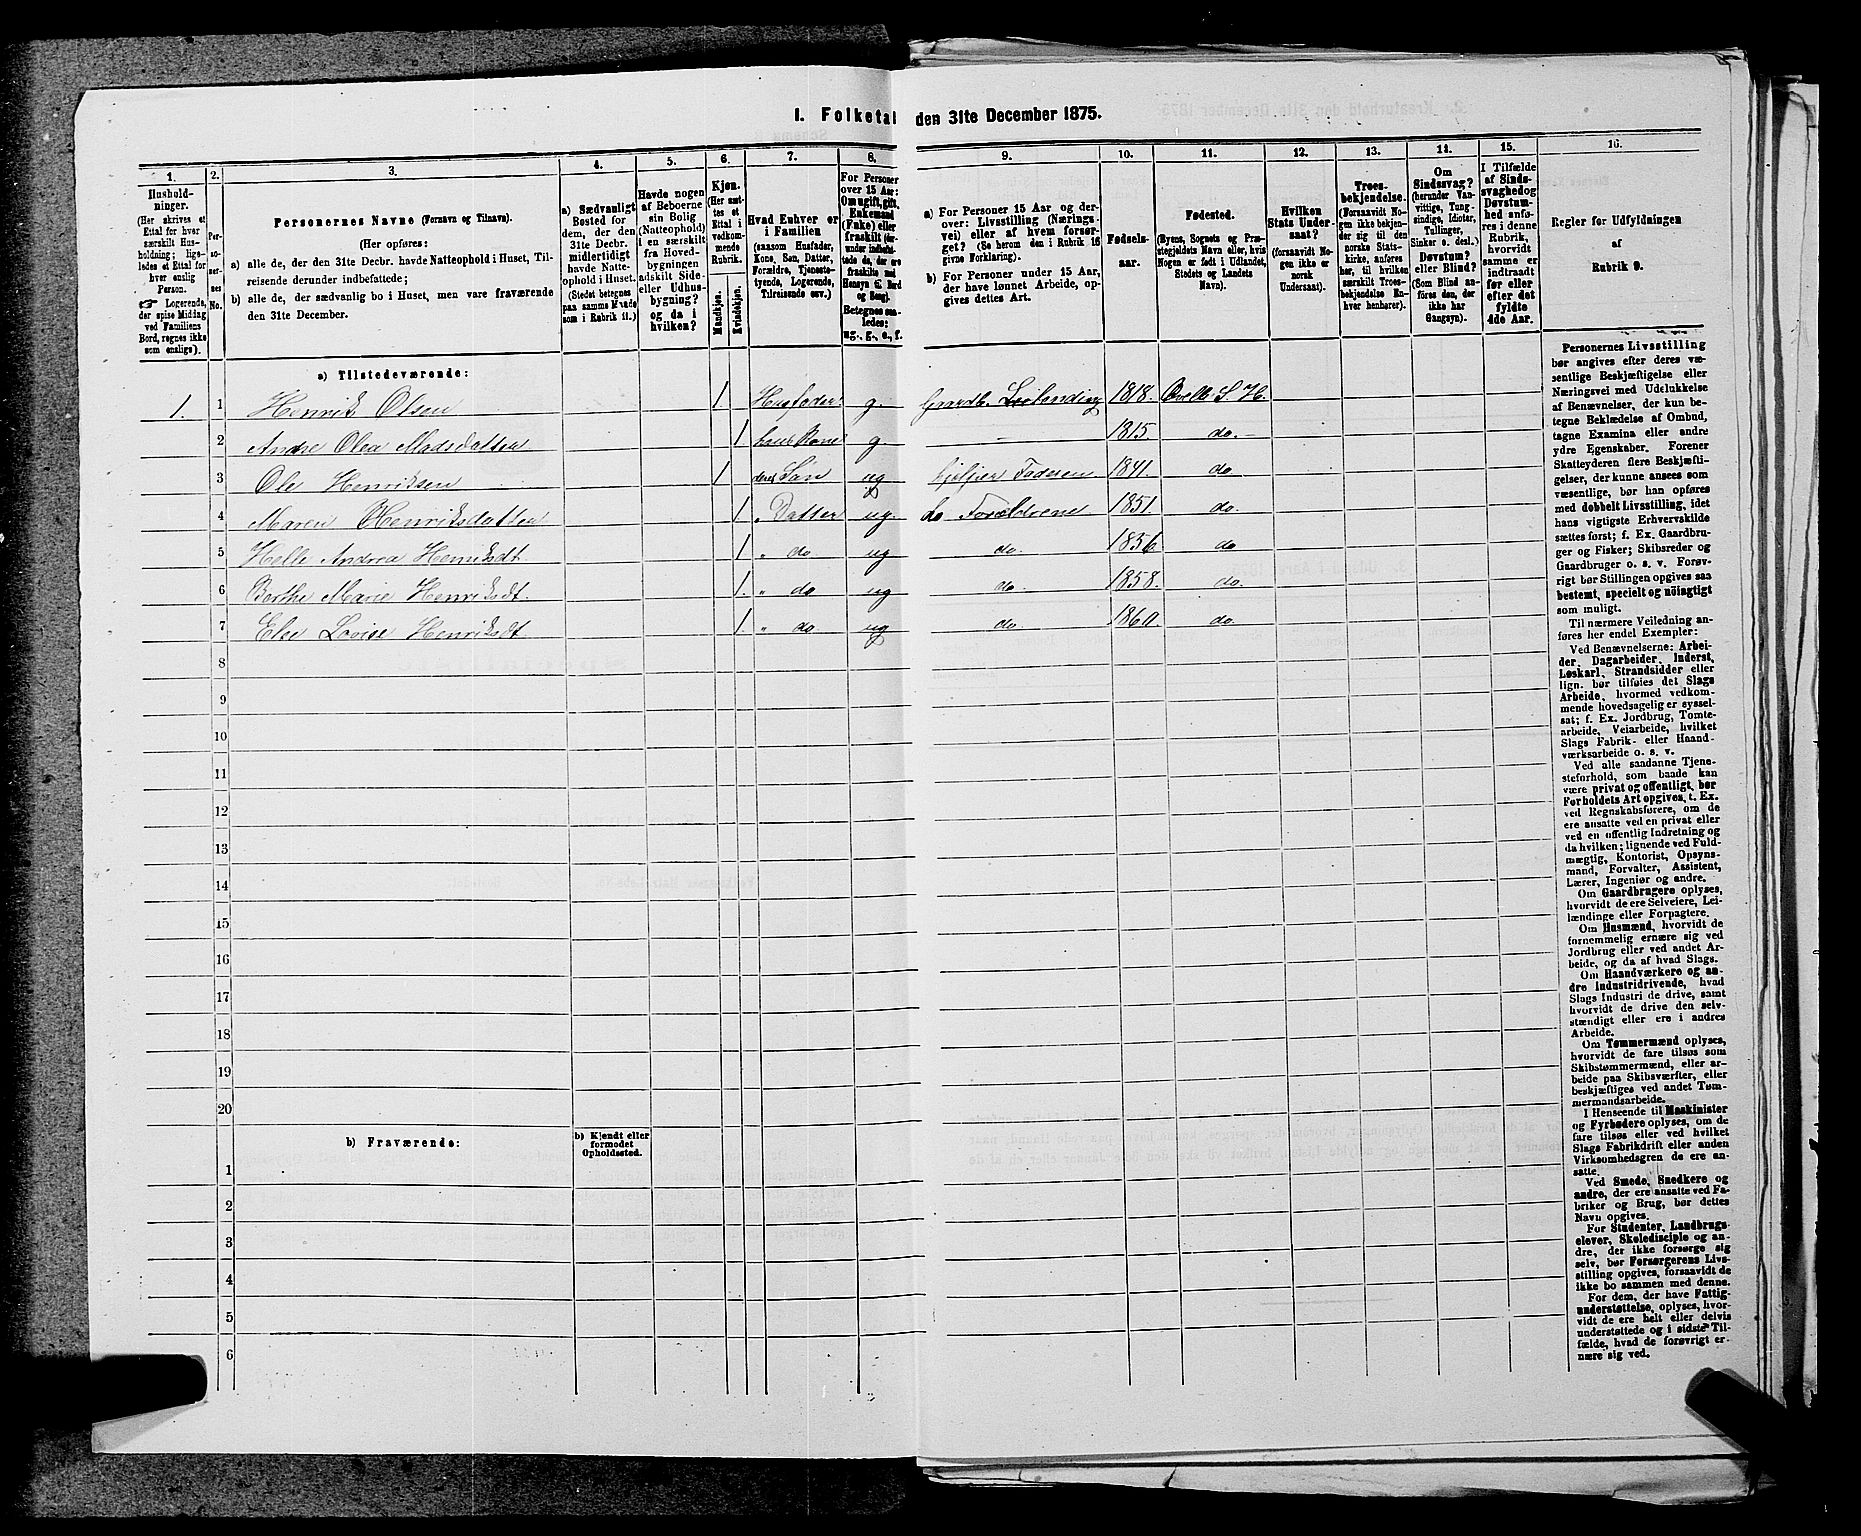 I. Folketal den 31te December 1875.
1.
Hushold-
ninger.
(Her skrives et
Ettal for hver
særskilt Hus-
holdning; lige-
ledes et Ettal for
hver enslig
Person.
☞ Logerende,
der spise Middag
ved Familiens
Bord, regnes ikke
som enslige).
2.
Per-
so-
ner-
nes
No.
3.
Personernes Navne (Fornavn og Tilnavn).
(Her opføres:
a) alle de, der den 31te Decbr. havde Natteophold i Huset, Til-
reisende derunder indbefattede;
b) alle de, der sædvanlig bo i Huset, men vare fraværende
den 31te December.
4.
a) Sædvanligt
Bosted for
dem, der den
31te Decbr.
midlertidigt
havde Natte-
ophold i Huset.
(Stedet betegnes
paa samme Maade
som i Rubrik 11.)
5.
Havde nogen
af Beboerne
sin Bolig
(Natteophold)
i en særskilt
fra Hoved-
bygningen
adskilt Side-
eller Udhus-
bygning?
og da i
hvilken?
6.
Kjøn.
(Her sæt-
tes et
Ettal i
vedkom-
mende
Rubrik.
Mandkjøn.
Kvindekjøn.
7.
Hvad Enhver er
i Familien
(saasom Husfader,
Kone, Søn, Datter,
Forældre, Tjeneste-
tyende, Logerende,
Tilreisende osv.)
8.
For Personer
over 15 Aar:
Om ugift, gift,
Enkemand
(Enke) eller
fraskilt
Betegnes saa-
ledes:
ug., g., e., f.
9.
a) For Personer 15 Aar og der-
over: Livsstilling (Nærings-
vei) eller af hvem forsør-
get? (Se herom den i Rubrik 16
givne Forklaring).
b) For Personer under 15 Aar,
der have lønnet Arbeide, op-
gives dettes Art.
10.
Fødsels-
aar.
11.
Fødested.
(Byens, Sognets og Præ-
stegjeldets Navn eller, hvis
Nogen er født i Udlandet,
Stedets og Landets
Navn).
12.
Hvilken
Stats Under-
saat?
(forsaavidt No-
gen ikke er
norsk
Undersaat).
13.
Troes-
bekjendelse.
(Forsaavidt No-
gen ikke bekjen-
der sig til den
norske Stats-
kirke, anføres
her, til hvilken
særskilt Troes-
bekjendelse En-
hver henhører).
14.
Om
Sindssvag?
(herunder Van-
vittige, Tung-
sindige, Idioter,
Tullinger,
Sinker o. desl.)
Døvstum?
eller Blind?
(Som Blind an-
føres den, der
ikke har
Gangsyn).
15.
I Tilfælde
af Sinds-
svaghed og
Døvstum-
hed anfø-
res i denne
Rubrik,
hvorvidt
samme er
indtraadt
før eller
efter det
fyldte
4de Aar.
16.
Regler for Udfyldningen
af
Rubrik 9.
a) Tilstedeværende:
1. 1 Henrik Olsen 1 Husfader g. Gaardb. Leilending 1818. S. H.
2 Andre Olea Madsdatter 1 hans Kone g. — 1815. do.
3 Ole Henriksen 1 deres Søn ug hjelper Faderen 1841. do
4 Maren Henriksdatter 1 " Datter ug. do Forældrene 1851. do.
5 Helle Andrea Henriksdt. 1 " do ug do. 1856. do
6 Berthe Marie Henriksdt. 1. " do ug do. 1858. do.
7 Else Lovise Henriksdt 1. " do ug do. 1860. do.
8
9
10
11
12
13
14
15
16
17
18
19
20
b) Fraværende:
b) Kjendt eller
formodet
Opholdssted.
1
2
3
4
5
6
Personernes Livsstilling
bør angives efter deres væ-
sentlige Beskjæftigelse eller
Næringsvei med Udelukkelse
af Benævnelser, der kun be-
tegne Beklædelse af Ombud,
tagne Examina eller andre
ydre Egenskaber. Forener
Skatteyderen flere Beskjæfti-
gelser, der kunne ansees som
væsentlige, bør han opføres
med dobbelt Livsstilling, idet
hans vigtigste Erhvervskilde
sættes først; f. Ex. Gaardbru-
ger og Fisker; Skibsreder og
Gaardbruger o. s. v. Forøv-
rigt bør Stillingen opgives saa
bestemt, specielt og nöiagtigt
som muligt.
Til nærmere Veiledning an-
føres her endel Exempler:
Ved Benævnelserne: Arbei-
der, Dagarbeider, Inderst,
Løskarl, Strandsidder eller
lign. bør tilføies det Slags
Arbeide, hvormed vedkom-
mende hovedsagelig er syssel-
sat; f. Ex. Jordbrug, Tomte-
arbeide, Veiarbeide, hvilket
Slags Fabrik- eller Haand-
værksarbeide o. s. v.
Ved alle saadanne Tjene-
steforhold, som baade kan
være privat og offentligt, bør
Forholdets Art opgives, t. Ex.
ved Regnskabsførere, om de
ere ansatte ved en privat eller
ved en offentlig Indretning og
da hvilken; lignende ved Fuld-
mægtig, Kontorist, Opsyns-
mand, Forvalter, Assistent,
Lærer, Ingeniør og andre.
Om Gaardbrugere oplyses,
hvorvidt de ere Selveiere, Lei-
lændinge eller Forpagtere.
Om Husmænd, hvorvidt de
fornemmelig ernære sig ved
Jordbrug eller ved andet Ar-
beide, og da af hvad Slags.
Om Haandværkere og an-
dre Industridrivende, hvad
Slags Industri de drive, samt
hvorvidt de drive den selv-
stændigt eller ere i andres
Arbeide.
Om Tømmermænd oplyses,
hvorvidt de fare tilsøs som
Skibstømmermænd, eller ar-
beide paa Skibsværfter, eller
beskjæftiges ved andet Tøm-
mermandsarbeide.
I Henseende til Maskinister
og Fyrbødere oplyses, om de
fare tilsøs eller ved hvilket
Slags Fabrikdrift eller anden
Virksomhedsgren de ere an-
satte.
Ved Smede, Snedkere og
andre, der ere ansatte ved Fa-
briker og Brug, bør dettes
Navn opgives.
For Studenter, Landbrugs-
elever, Skoledisciple og an-
dre, der ikke forsørge sig
selv, bør Forsørgerens Livs-
stilling opgives, forsaavidt de
ikke bo sammen med denne.
For dem, der have Fattig-
understøttelse, oplyses, hvor-
vidt de ere helt eller delvis
understøttede og i sidste Til-
fælde, hvad de forøvrigt er-
nære sig ved.